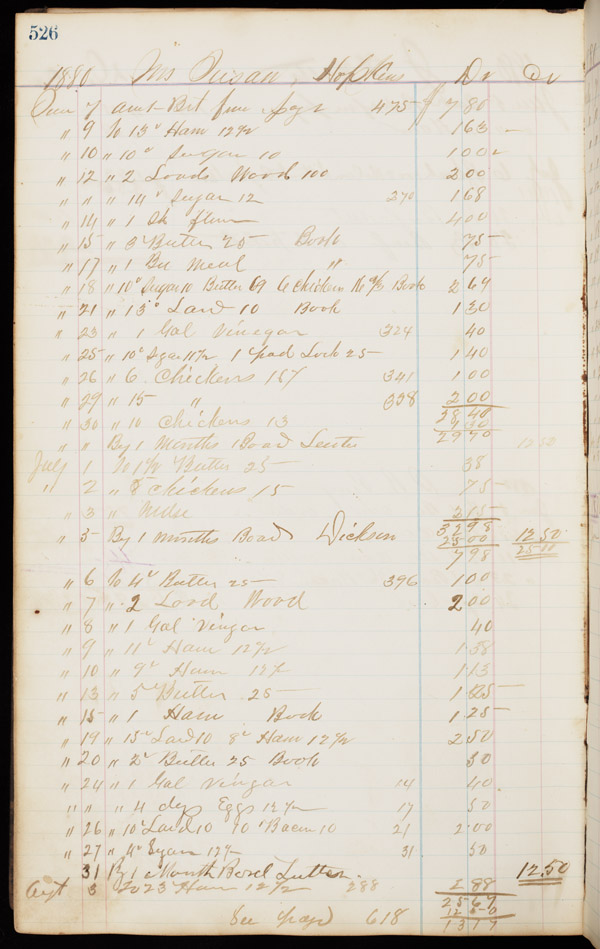 526
1880 Mrs Susan, Hopkins Dr Cr
June 7 amt Brt from page 475 $ 7 80
" 9 To 13" Ham 12½ 1 63
" 10 " 10" Sugar 10 1 00
" 12 " 2 Loads Wood 100 2 00
" " " 14" Sugar 12 270 1 68
" 14 " 1 Sk 4 00
" 15 " 3" Butter 25 Book 75
" 17 " 1 Bu Meal " 75
" 18 " 10" Sugar 10 Butter 69 6 chickens Book 2 69
" 21 " 13" Lard 10 Book 1 30
" 23 " 1 Gal Vinegar 324 40
" 25 " 10" Sgar 11½ 1 pad Lock 25 1 40
" 26 " 6 Chickens 16⅔ 341 1 00
" 29 " 15 " 338 2 00
28 40
" 30 " 10 chickens 13 1 30
29 70
" " By 1 Months Board 12 50
July 1 To 1½ Butter 25 38
" 2 " 8 chickens 15 75
" 3 " Mdse 2 15
32 98
" 5 By 1 months Board Dickson 25 00 12 50
7 98 25 00
" 6 To 4" Butter 25 396 1 00
" 7 " 2 Load Wood 2 00
" 8 " 1 Gal Vingar 40
" 9 " 11" Ham 12½ 1 38
" 10 " 9" Ham 12½ 1 13
" 13 " 5" Butter 25 1 25
" 15 " 1 Ham Book 1 25
" 19 " 15" Lard 10 8" Ham 12½ 2 50
" 20 " 2" Butter 25 Book 50
" 24 " 1 Gal Vingar 14 40
" " " 4 dz Eggs 12½ 17 50
" 26 " 10" Lard 10 10" Bacon 10 21 2 00
" 27 " 4" Sgar 12½ 31 50
31 By 1 Month Bord 12 50
Augt 3 To 23 Ham 12½ 288 2 88
25 67
12 50
13 17
See page 618